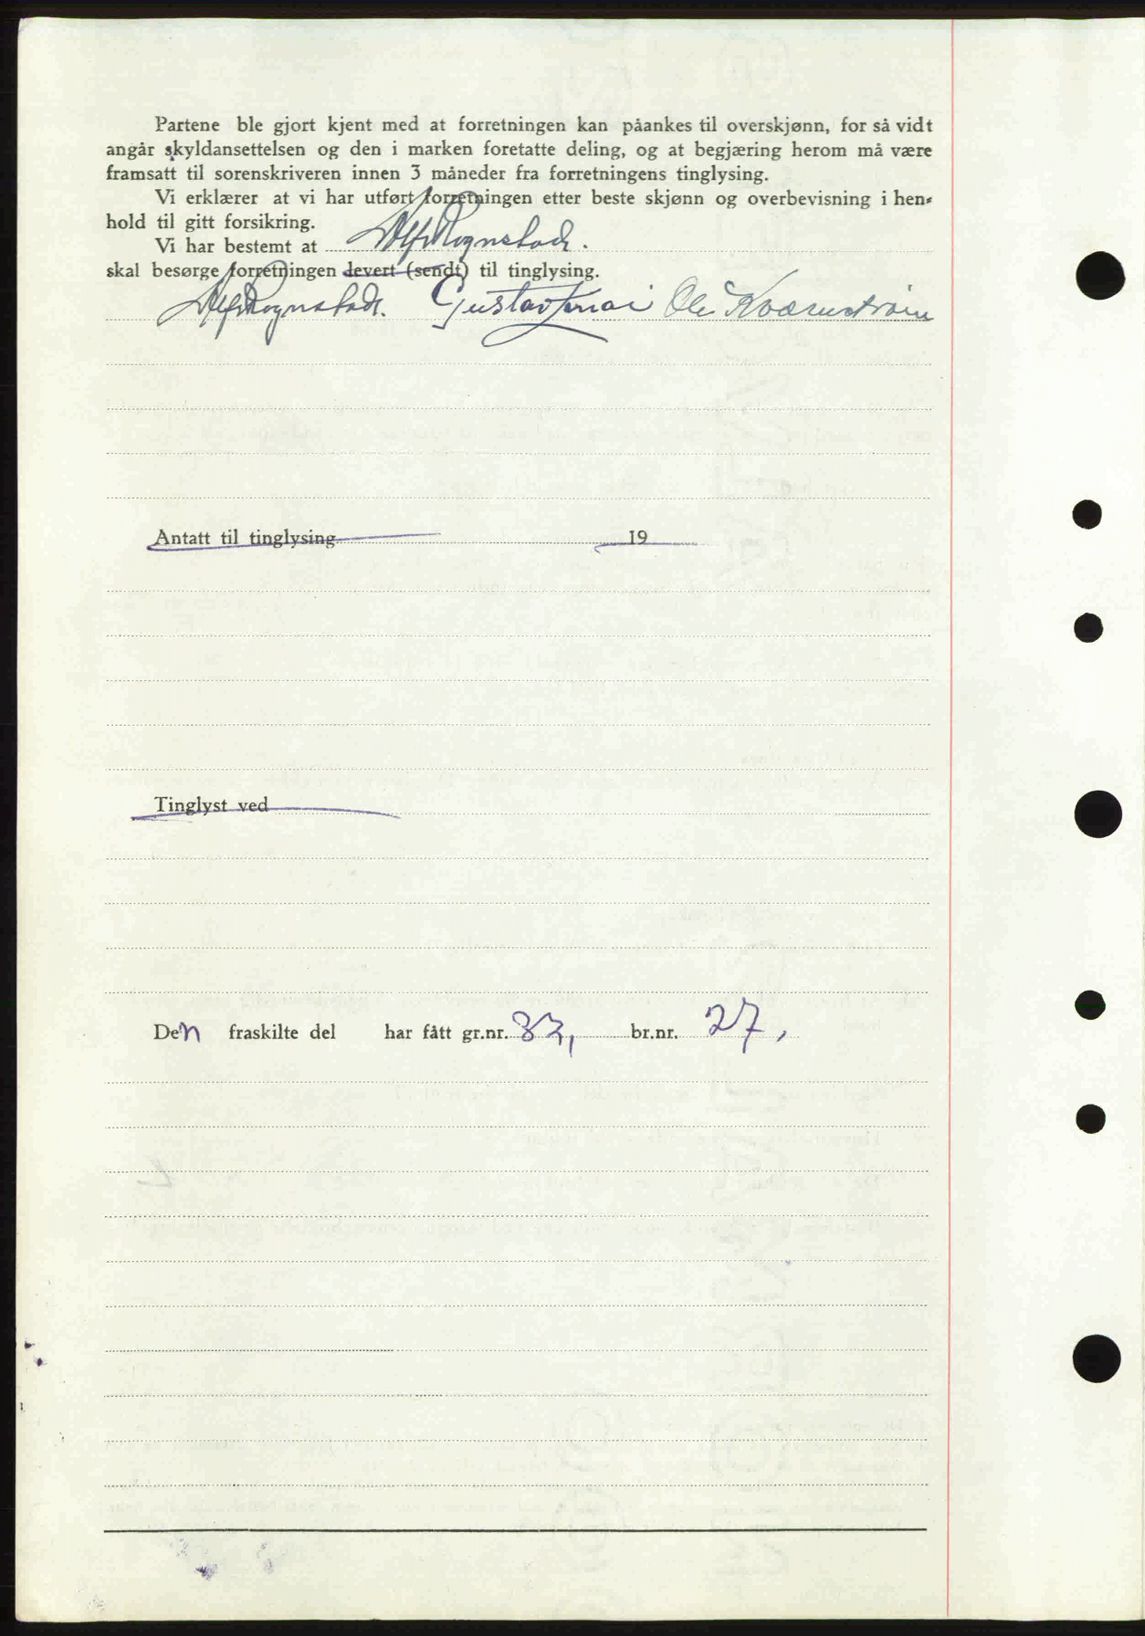 Partene ble gjort kjent med at forretningen kan påankes til overskjønn, for så vidt
angår skyldansettelsen og den i marken foretatte deling, og at begjæring herom må være
framsatt til sorenskriveren innen 3 måneder fra forretningens tinglysing.
Vi erklærer at vi har utført forretningen etter beste skjønn og overbevisning i hen-
hold til gitt forsikring.
Vi har bestemt at Alf Rognstad.
skal besørge forretningen levert (sendt) til tinglysing.
Alf Rognstad. Gustav Ole Kværnstrøm
Antatt til tinglysing 19
Tinglyst ved
Den fraskilte del har fått gr.nr. 33, br.nr. 27,